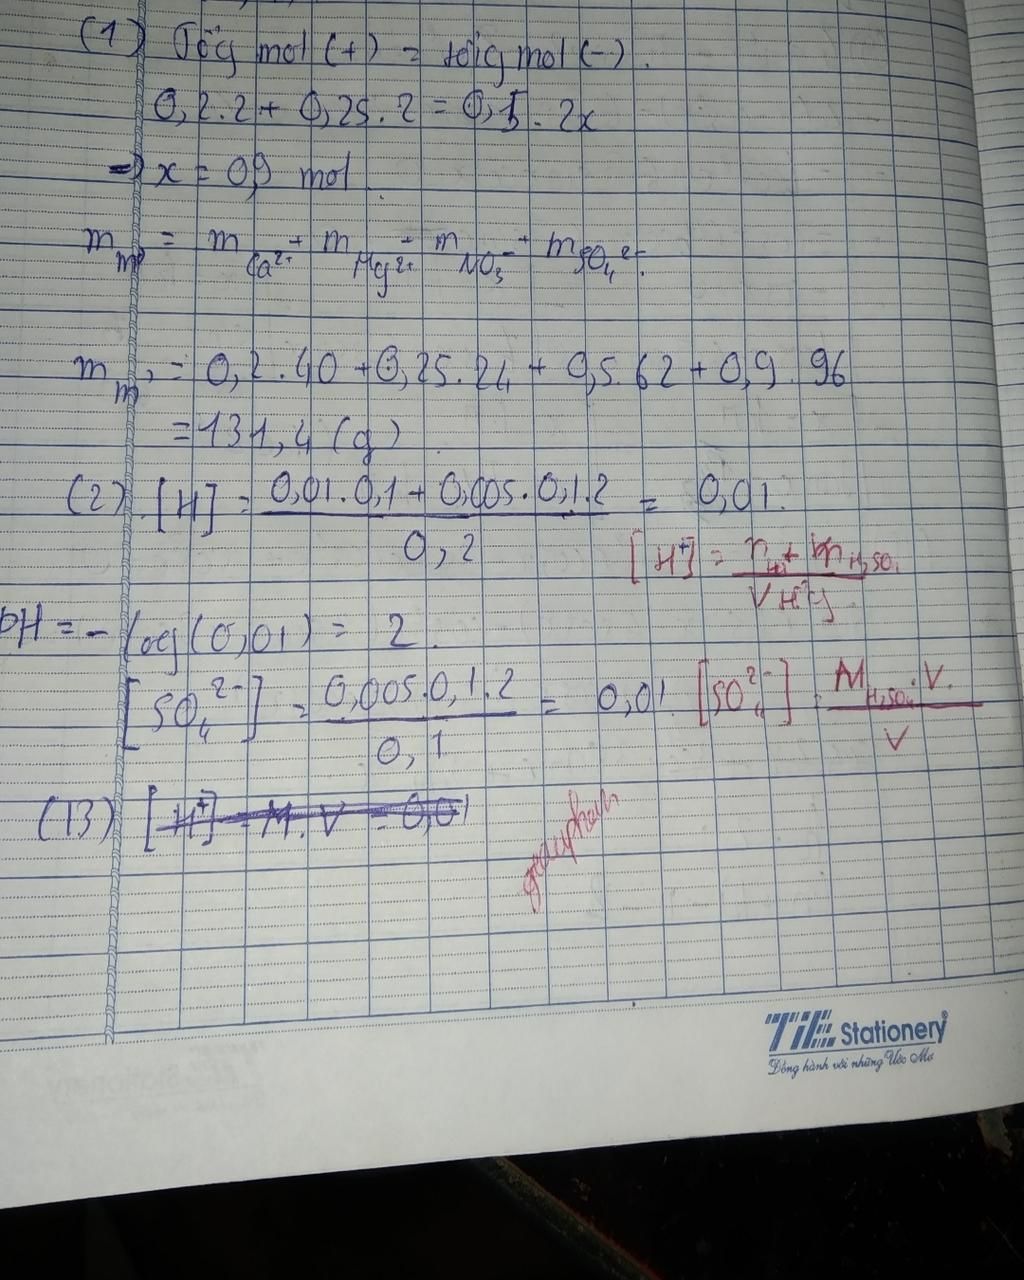 (1) Tổg mol (+) = tổig mol (-).
0,2.2 + 0,25.2 = 0,5.2x
=> x = 0,9 mol
m m' = m Ca²⁺ + m Mg²⁺ + m NO₃⁻ + m SO₄²⁻.
m m' = 0,2.40 + 0,25.24 + 0,5.62 + 0,9.96
= 131,4 (g)
(2) [H] = 0,01.0,1 + 0,005.0,1.2 / 0,2 = 0,01.
[H⁺] = / V
pH = - log(0,01) = 2.
[SO₄²⁻] = 0,005.0,1.2 / 0,1 = 0,01 [SO₄²⁻] = M H₂SO₄.V. / V
(13) [H⁺] = M.V = 0,01
TiE Stationery
Đồng hành với những Ước Mơ